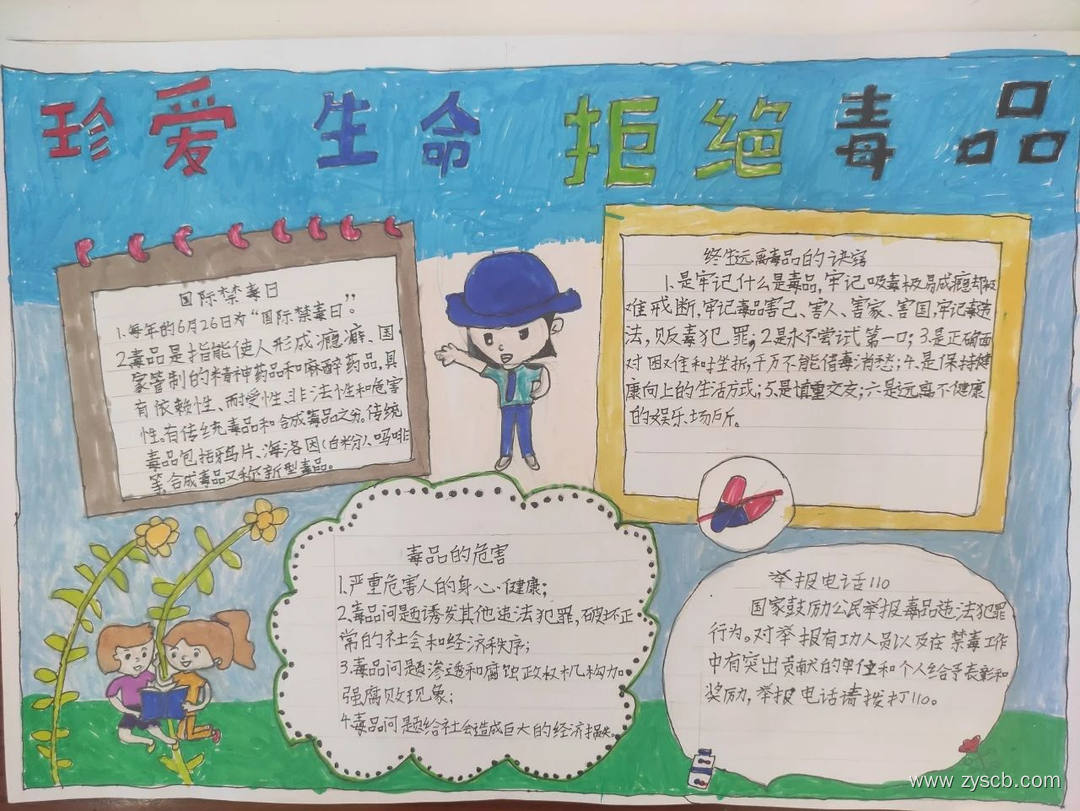 珍爱 生命 拒绝 毒品
国际禁毒日
1.每年的6月26日为“国际禁毒日”。
2毒品是指能使人形成瘾癖、国
家管制的精神药品和麻醉药品,具
有依赖性、耐受性、非法性和危害
性。有传统毒品和合成毒品之分。传统
毒品包括鸦片、海洛因(白粉)、吗啡
等,合成毒品又称新型毒品。
终生远离毒品的诀窍
1.是牢记什么是毒品,牢记吸毒极易成瘾却极
难戒断,牢记毒品害己、害人、害家、害国,牢记毒违
法,贩毒犯罪;2.是永不尝试第一口;3.是正确面
对困难和挫折,千万不能借毒消愁;4.是保持健
康向上的生活方式;5.是慎重交友;六是远离不健康
的娱乐场所。
毒品的危害
1.严重危害人的身心健康;
2.毒品问题诱发其他违法犯罪,破坏正
常的社会和经济秩序;
3.毒品问题渗透和腐蚀政权机构加
强腐败现象;
4.毒品问题给社会造成巨大的经济损失。
举报电话110
国家鼓励公民举报毒品违法犯罪
行为。对举报有功人员以及在禁毒工作
中有突出贡献的单位和个人给予表彰和
奖励,举报电话请拨打110。
www.zyscb.com